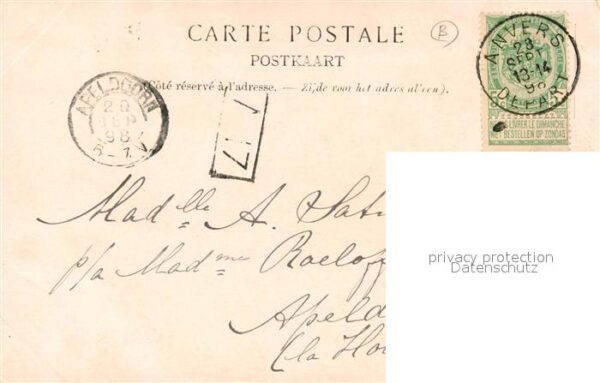 CARTE POSTALE
POSTKAART
Côté réservé à l'adresse. — Zijde voor het adres alleen).
B
ANVERS
28
SEPT
13-14
98
DEPART
NE PAS LIVRER LE DIMANCHE
NIET BESTELLEN OP ZONDAG
APELDOORN
SEP
98
17
Mad lle A.
p/a Mad me Roelof
Apeld
(la Ho
privacy protection
Datenschutz